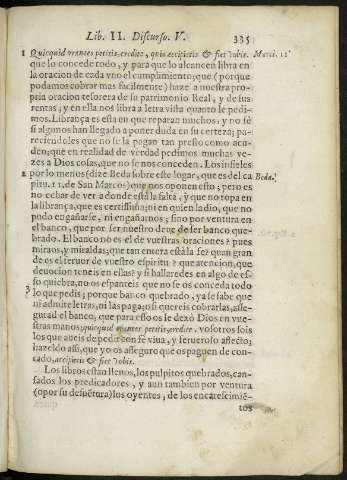 Lib. II. Discurso. V. 335
1 Quicquid orantes petitis, credite, quia accipietis & fiet vobis. Marci. 11
que lo concede todo, y para que lo alcancen libra en
la oracion de cada vno el cumplimiento; que (porque
podamos cobrar mas facilmente) haze a nuestra pro-
pria oracion tesorera de su patrimonio Real, y de sus
rentas; y en ella nos libra a letra vista quanto le pedi-
mos. Librança es esta en que reparan muchos; y no sè
si algunos han llegado a poner duda en su certeza; pa-
reciendoles que no se la pagan tan presto como acu-
den; que en realidad de verdad pedimos muchas ve-
zes a Dios cosas, que no se nos conceden. Los infieles
2 por lo menos (dize Beda sobre este lugar, que es del ca Beda.
pitu. 11. de San Marcos) que nos oponen esto; pero es
no echar de ver a donde està la falta, y que no topa en
la librança, que es certissima; ni en quien la dio, que no
pudo engañarse, ni engañarnos; sino por ventura en
el banco, que por ser nuestro deue de ser banco que-
brado. El banco no es el de vuestras oraciones? pues
miraos, y miraldas; que tan entera està la fe? quan gran-
de es el feruor de vuestro espiritu? que atencion, que
deuocion teneis en ellas? y si hallaredes en algo de es-
so quiebra, no os espanteis que no se os conceda todo
3 lo que pedis; porque banco quebrado, ya se sabe que
ni admite letras, ni las paga; o si quereis cobrarlas, asse-
gurad el banco, que para esso os le dexò Dios en vue-
stras manos; quicquid orantes petitis, credite. vosotros sois
los que aueis de pedir con fe viua, y feruoroso affecto;
hazeldo assi, que yo os asseguro que os paguen de con-
tado, accipietis & fiet vobis.
Los libros estan llenos, los pulpitos quebrados, can-
sados los predicadores, y aun tambien por ventura
(o por su desuẽtura) los oyentes, de los encarescimiẽ-
tos